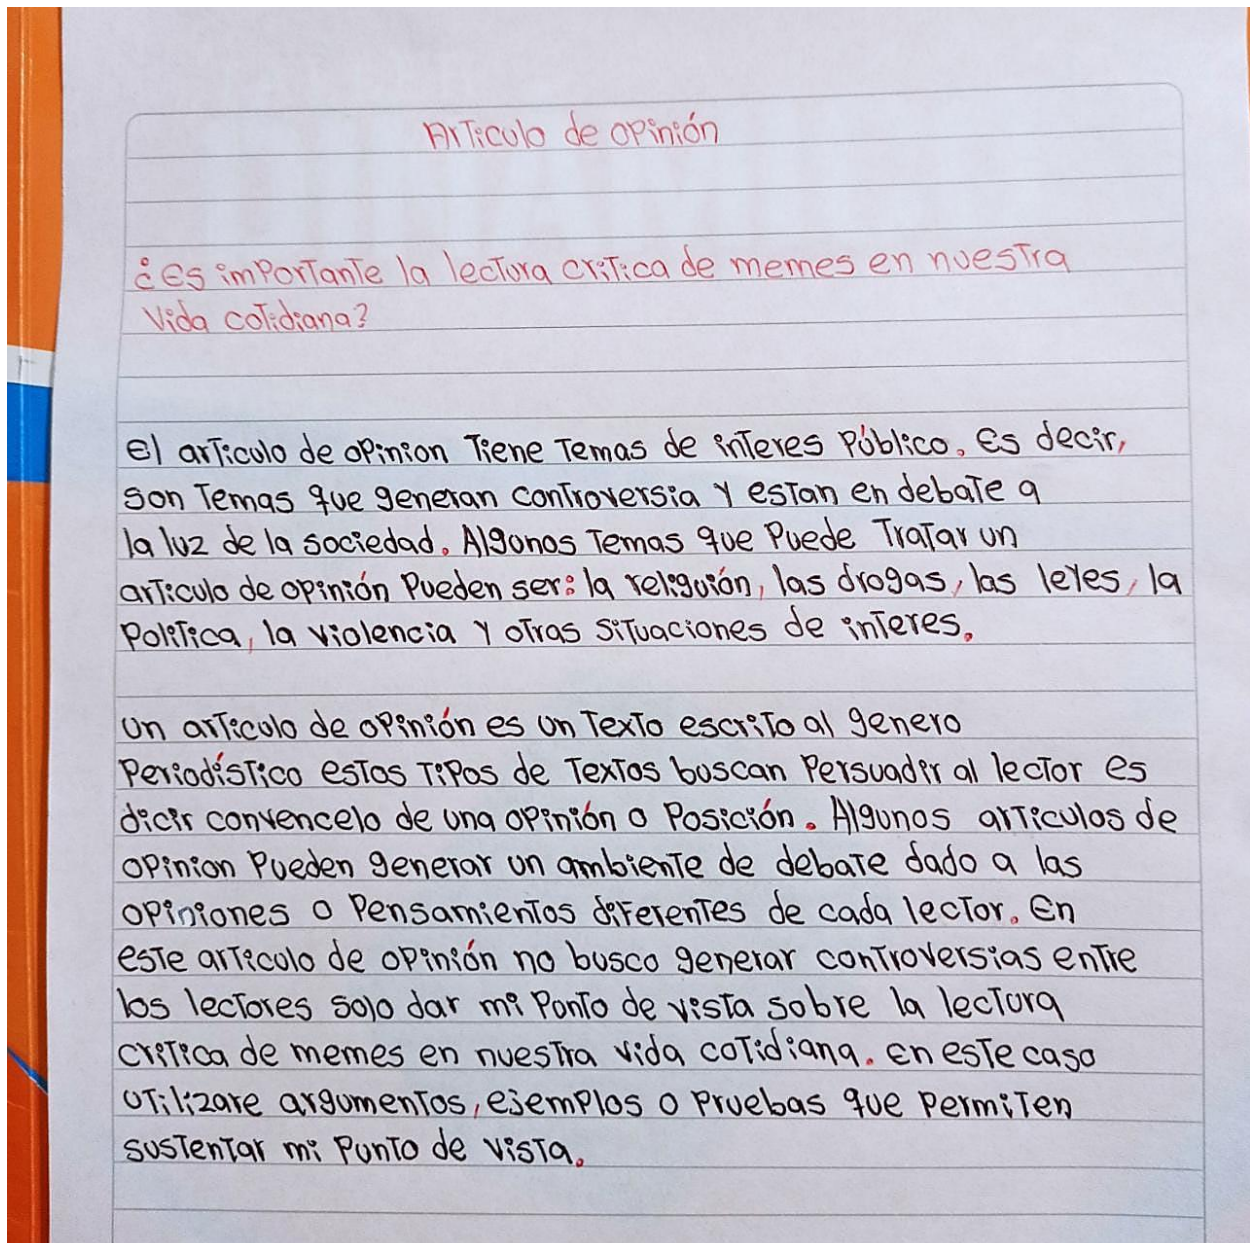 Articulo de opinión
¿Es importante la lectura critica de memes en nuestra
vida cotidiana?
El articulo de opinion tiene temas de interes público. Es decir,
son temas que generan controversia y estan en debate a
la luz de la sociedad. Algunos temas que puede tratar un
articulo de opinión pueden ser: la religuión, las drogas, las leyes, la
politica, la violencia y otras situaciones de interes.
Un articulo de opinión es un texto escrito al genero
periodístico estos tipos de textos buscan persuadir al lector es
dicir convencelo de una opinión o posición. Algunos articulos de
opinion pueden generar un ambiente de debate dado a las
opiniones o pensamientos diferentes de cada lector. En
este articulo de opinión no busco generar controversias entre
los lectores solo dar mi punto de vista sobre la lectura
critica de memes en nuestra vida cotidiana. En este caso
utilizare argumentos, ejemplos o pruebas que permiten
sustentar mi punto de vista.